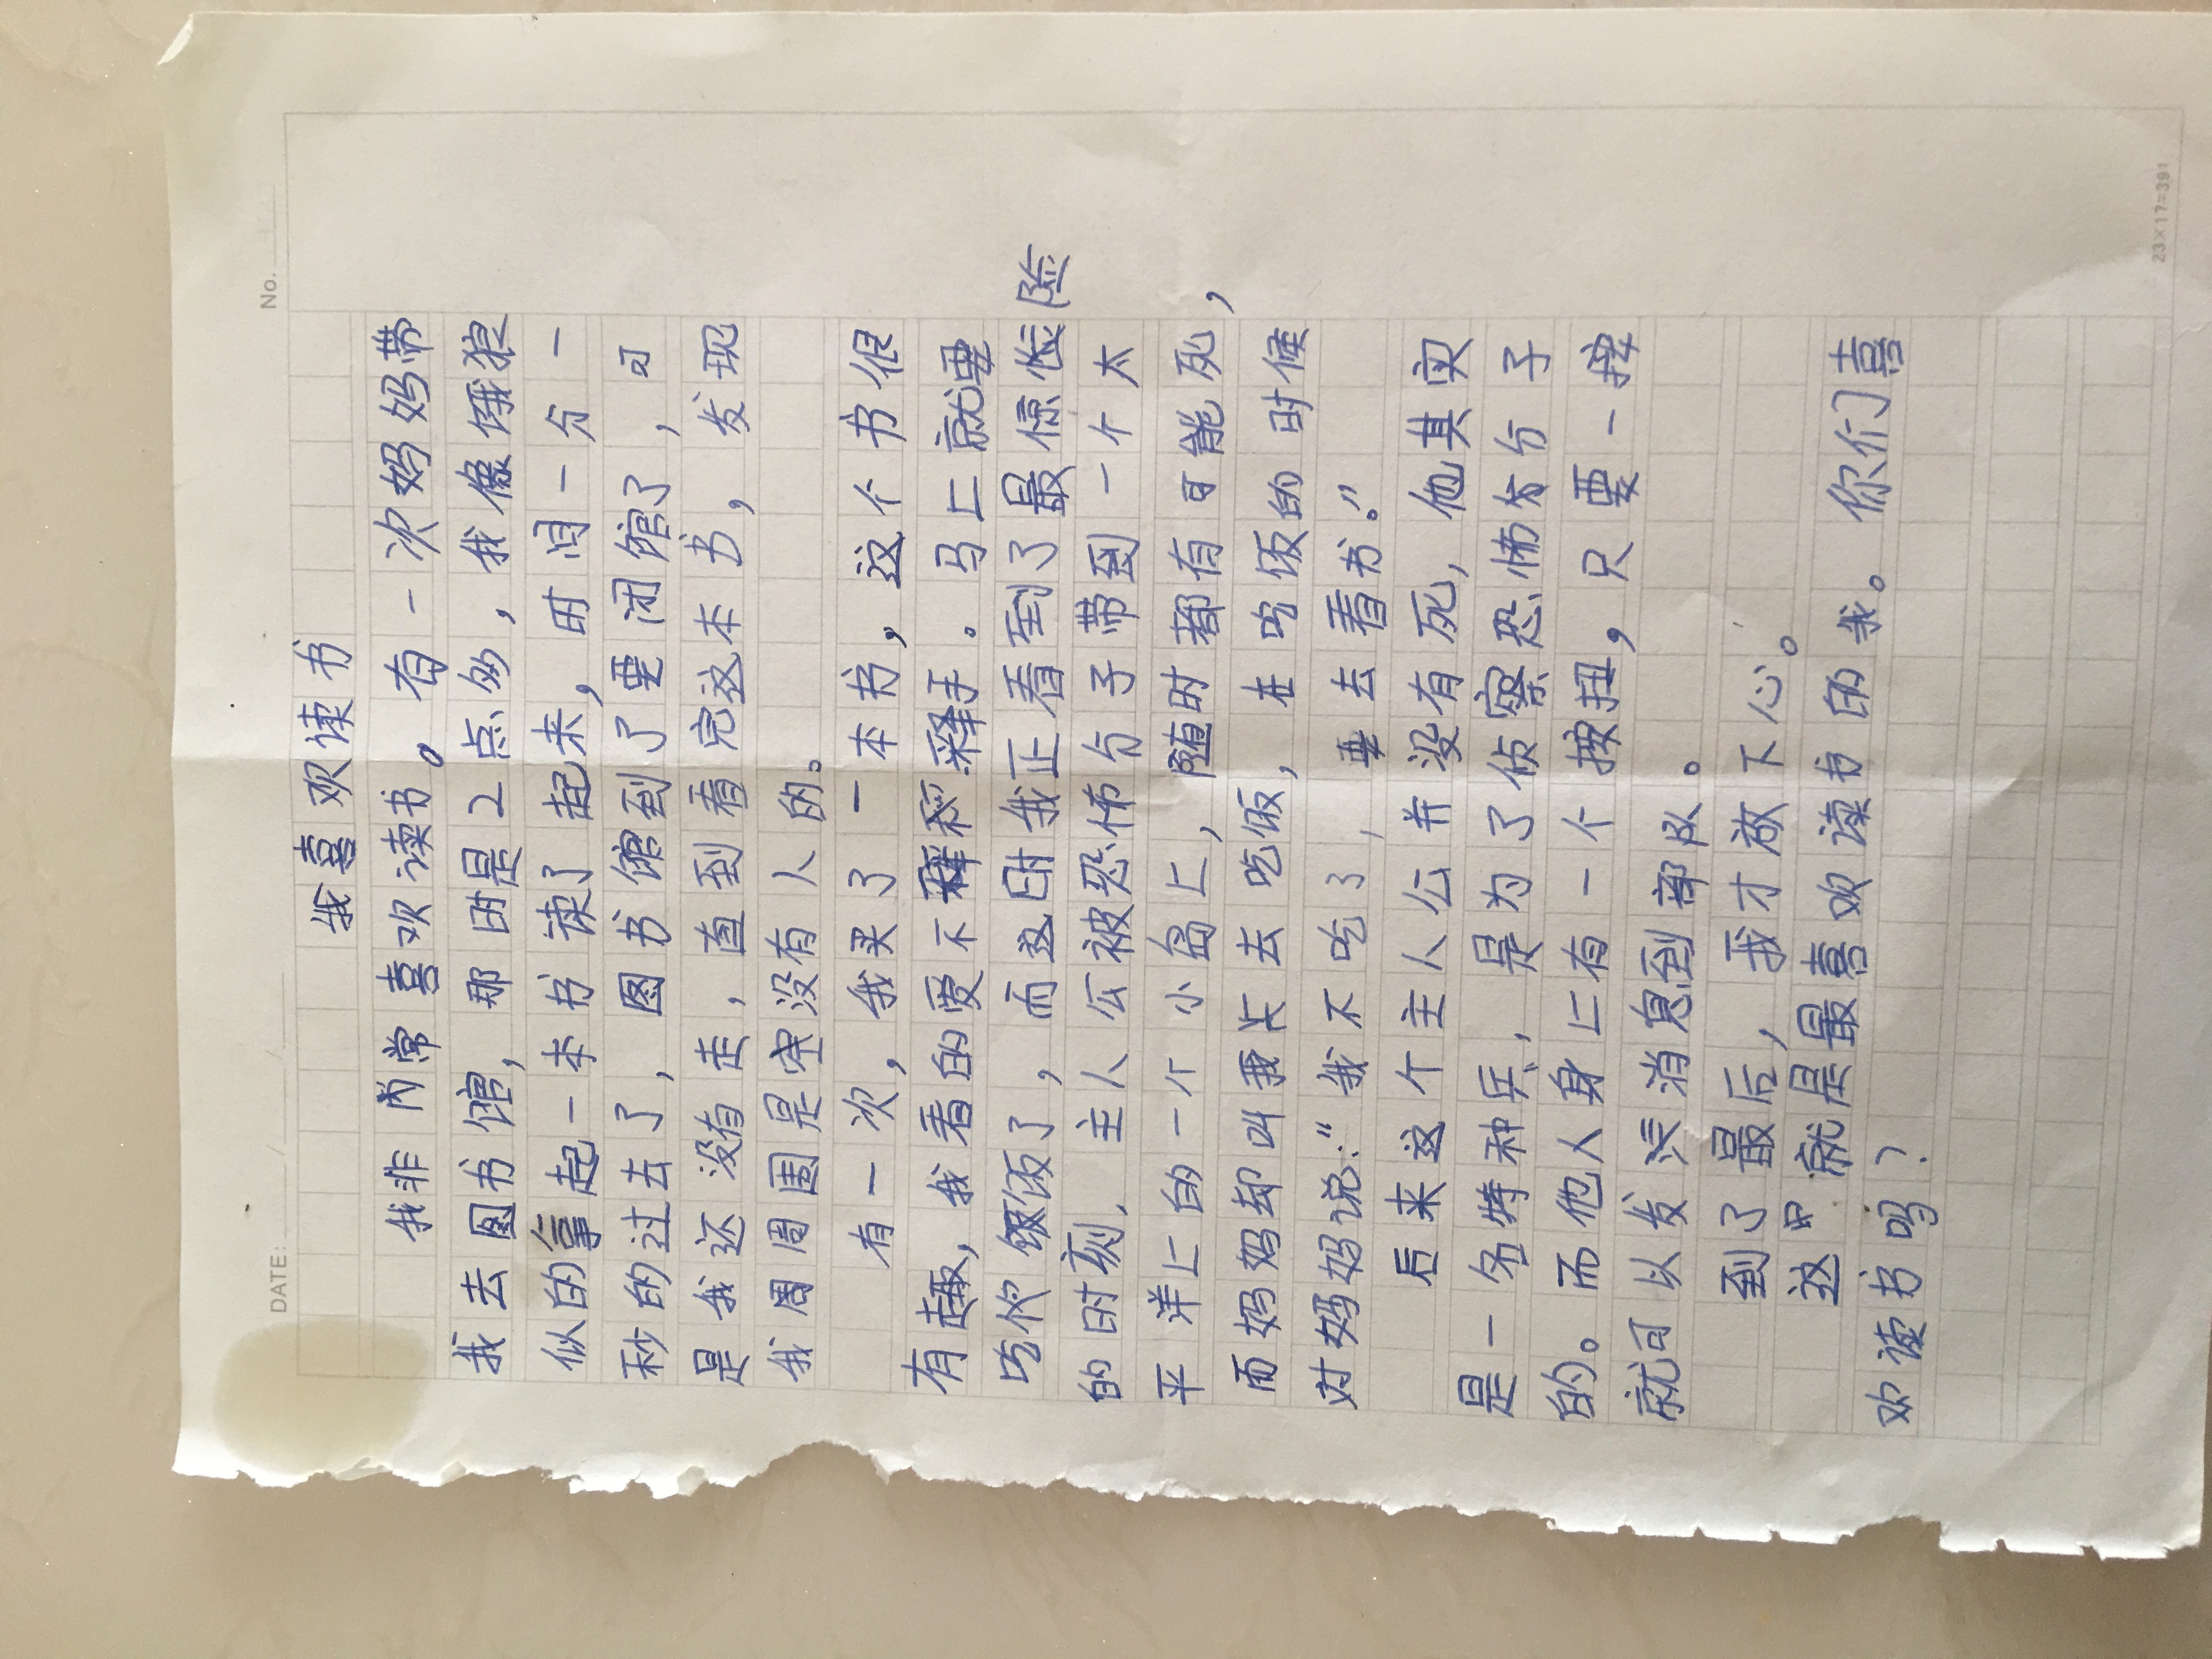 No.
DATE: / /
我喜欢读书
我非常喜欢读书。有一次妈妈带
我去图书馆,那时是2点多,我像饿狼
似的拿起一本书读了起来,时间一分一
秒的过去了,图书馆到了要闭馆了,可
是我还没有走,直到看完这本书,发现
我周周围是空没有人的。
有一次,我买了一本书,这个书很
有趣,我看的爱不释手。马上就要
吃饭了,而这时我正看到了最惊险
的时刻,主人公被恐怖分子带到一个太
平洋上的一个小岛上,随时都有可能死,
而妈妈却叫我去吃饭,在吃饭的时候
对妈妈说:“我不吃了,要去看书。”
后来这个主人公并没有死,他其实
是一名特种兵,是为了侦察恐怖分子
的。而他人身上有一个按扭,只要一按
就可以发消息到部队。
到了最后,我才放下心。
这就是最喜欢读书的我。你们喜
欢读书吗?
23×17=391